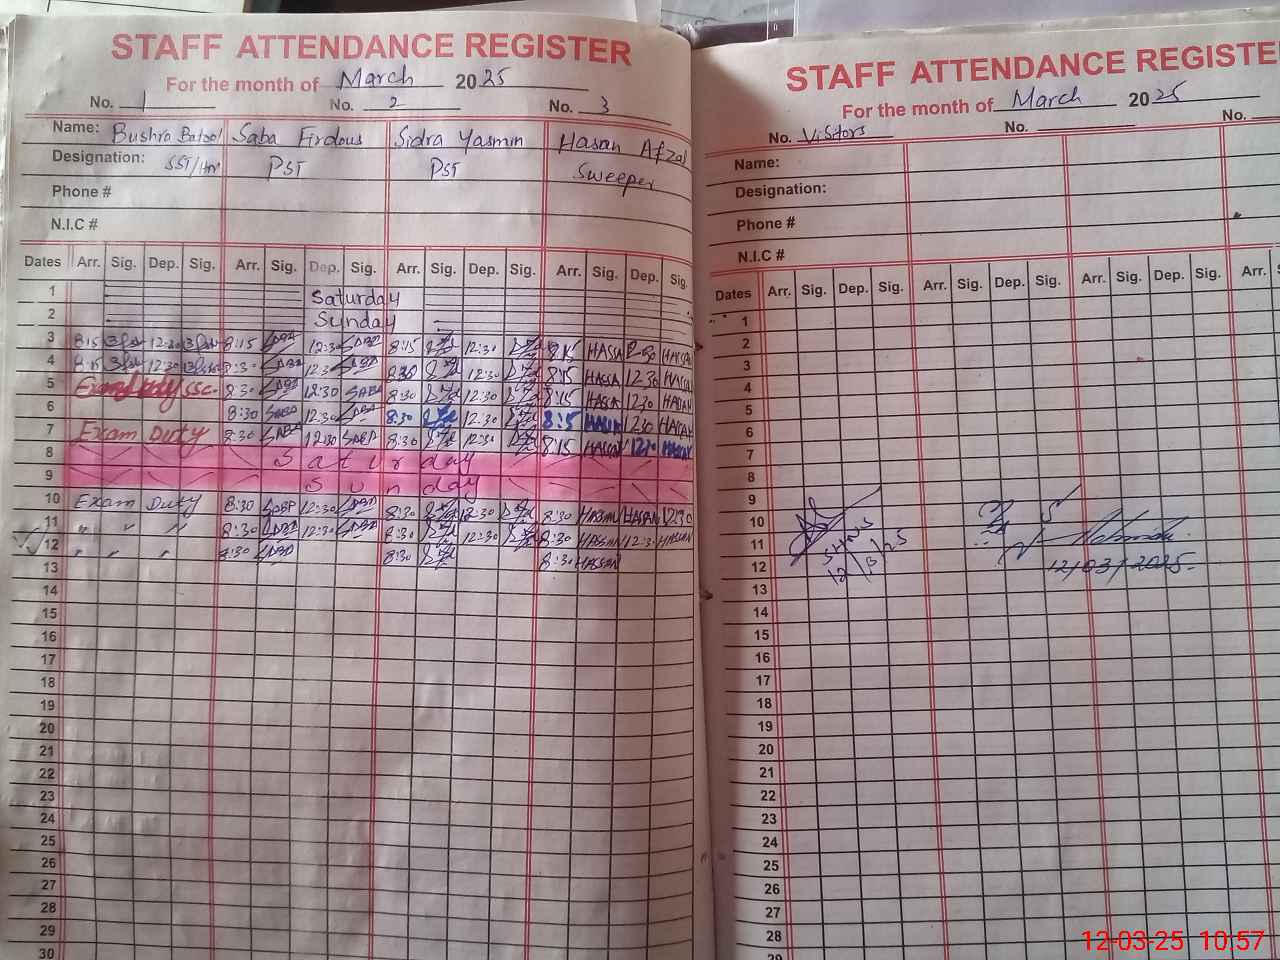 STAFF ATTENDANCE REGISTER
For the month of March 2025
No. 1 No. 2 No. 3
Name: Bushra Batool Saba Firdous Sidra Yasmin Hasan Afzal
Designation: SST/ PST PST Sweeper
Phone #
N.I.C #
Dates Arr. Sig. Dep. Sig. Arr. Sig. Dep. Sig. Arr. Sig. Dep. Sig. Arr. Sig. Dep. Sig.
1 Saturday
2 Sunday
3 8:15 12:30 8:15 12:30 8:15 12:30 8:15 HASSA
4 8:15 12:30 8:30 12:30 8:30 12:30 8:15 HASSA 12:30
5 SSC. 8:30 12:30 SABA 8:30 12:30 8:15 HASSA 1230
6 8:30 12:30 8:30 12:30 1230
7 Exam Duty 8:30 12:30 8:30 12:30 8:15 HASSAN
8 Saturday
9 Sunday
10 Exam Duty 8:30 12:30 8:30 12:30 8:30 HASSAN HASAN 12:30
11 " " " 8:30 12:30 8:30 12:30 8:30 HASSAN 12:3 HASSAN
12 " " " 8:30 8:30 8:30 HASSAN
13
14
15
16
17
18
19
20
21
22
23
24
25
26
27
28
29
30
STAFF ATTENDANCE REGISTE
For the month of March 2025
No. Visitors No. No.
Name:
Designation:
Phone #
N.I.C #
Dates Arr. Sig. Dep. Sig. Arr. Sig. Dep. Sig. Arr. Sig. Dep. Sig. Arr. S
1
2
3
4
5
6
7
8
9
10
11
12
13
14
15
16
17
18
19
20
21
22
23
24
25
26
27
28
29
12/3/25
12/03/2025.
12-03-25 10:57